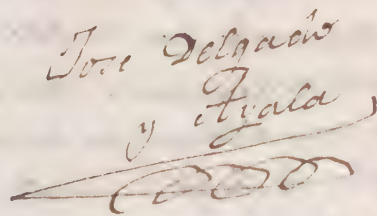 Jose Delgado
y Ayala